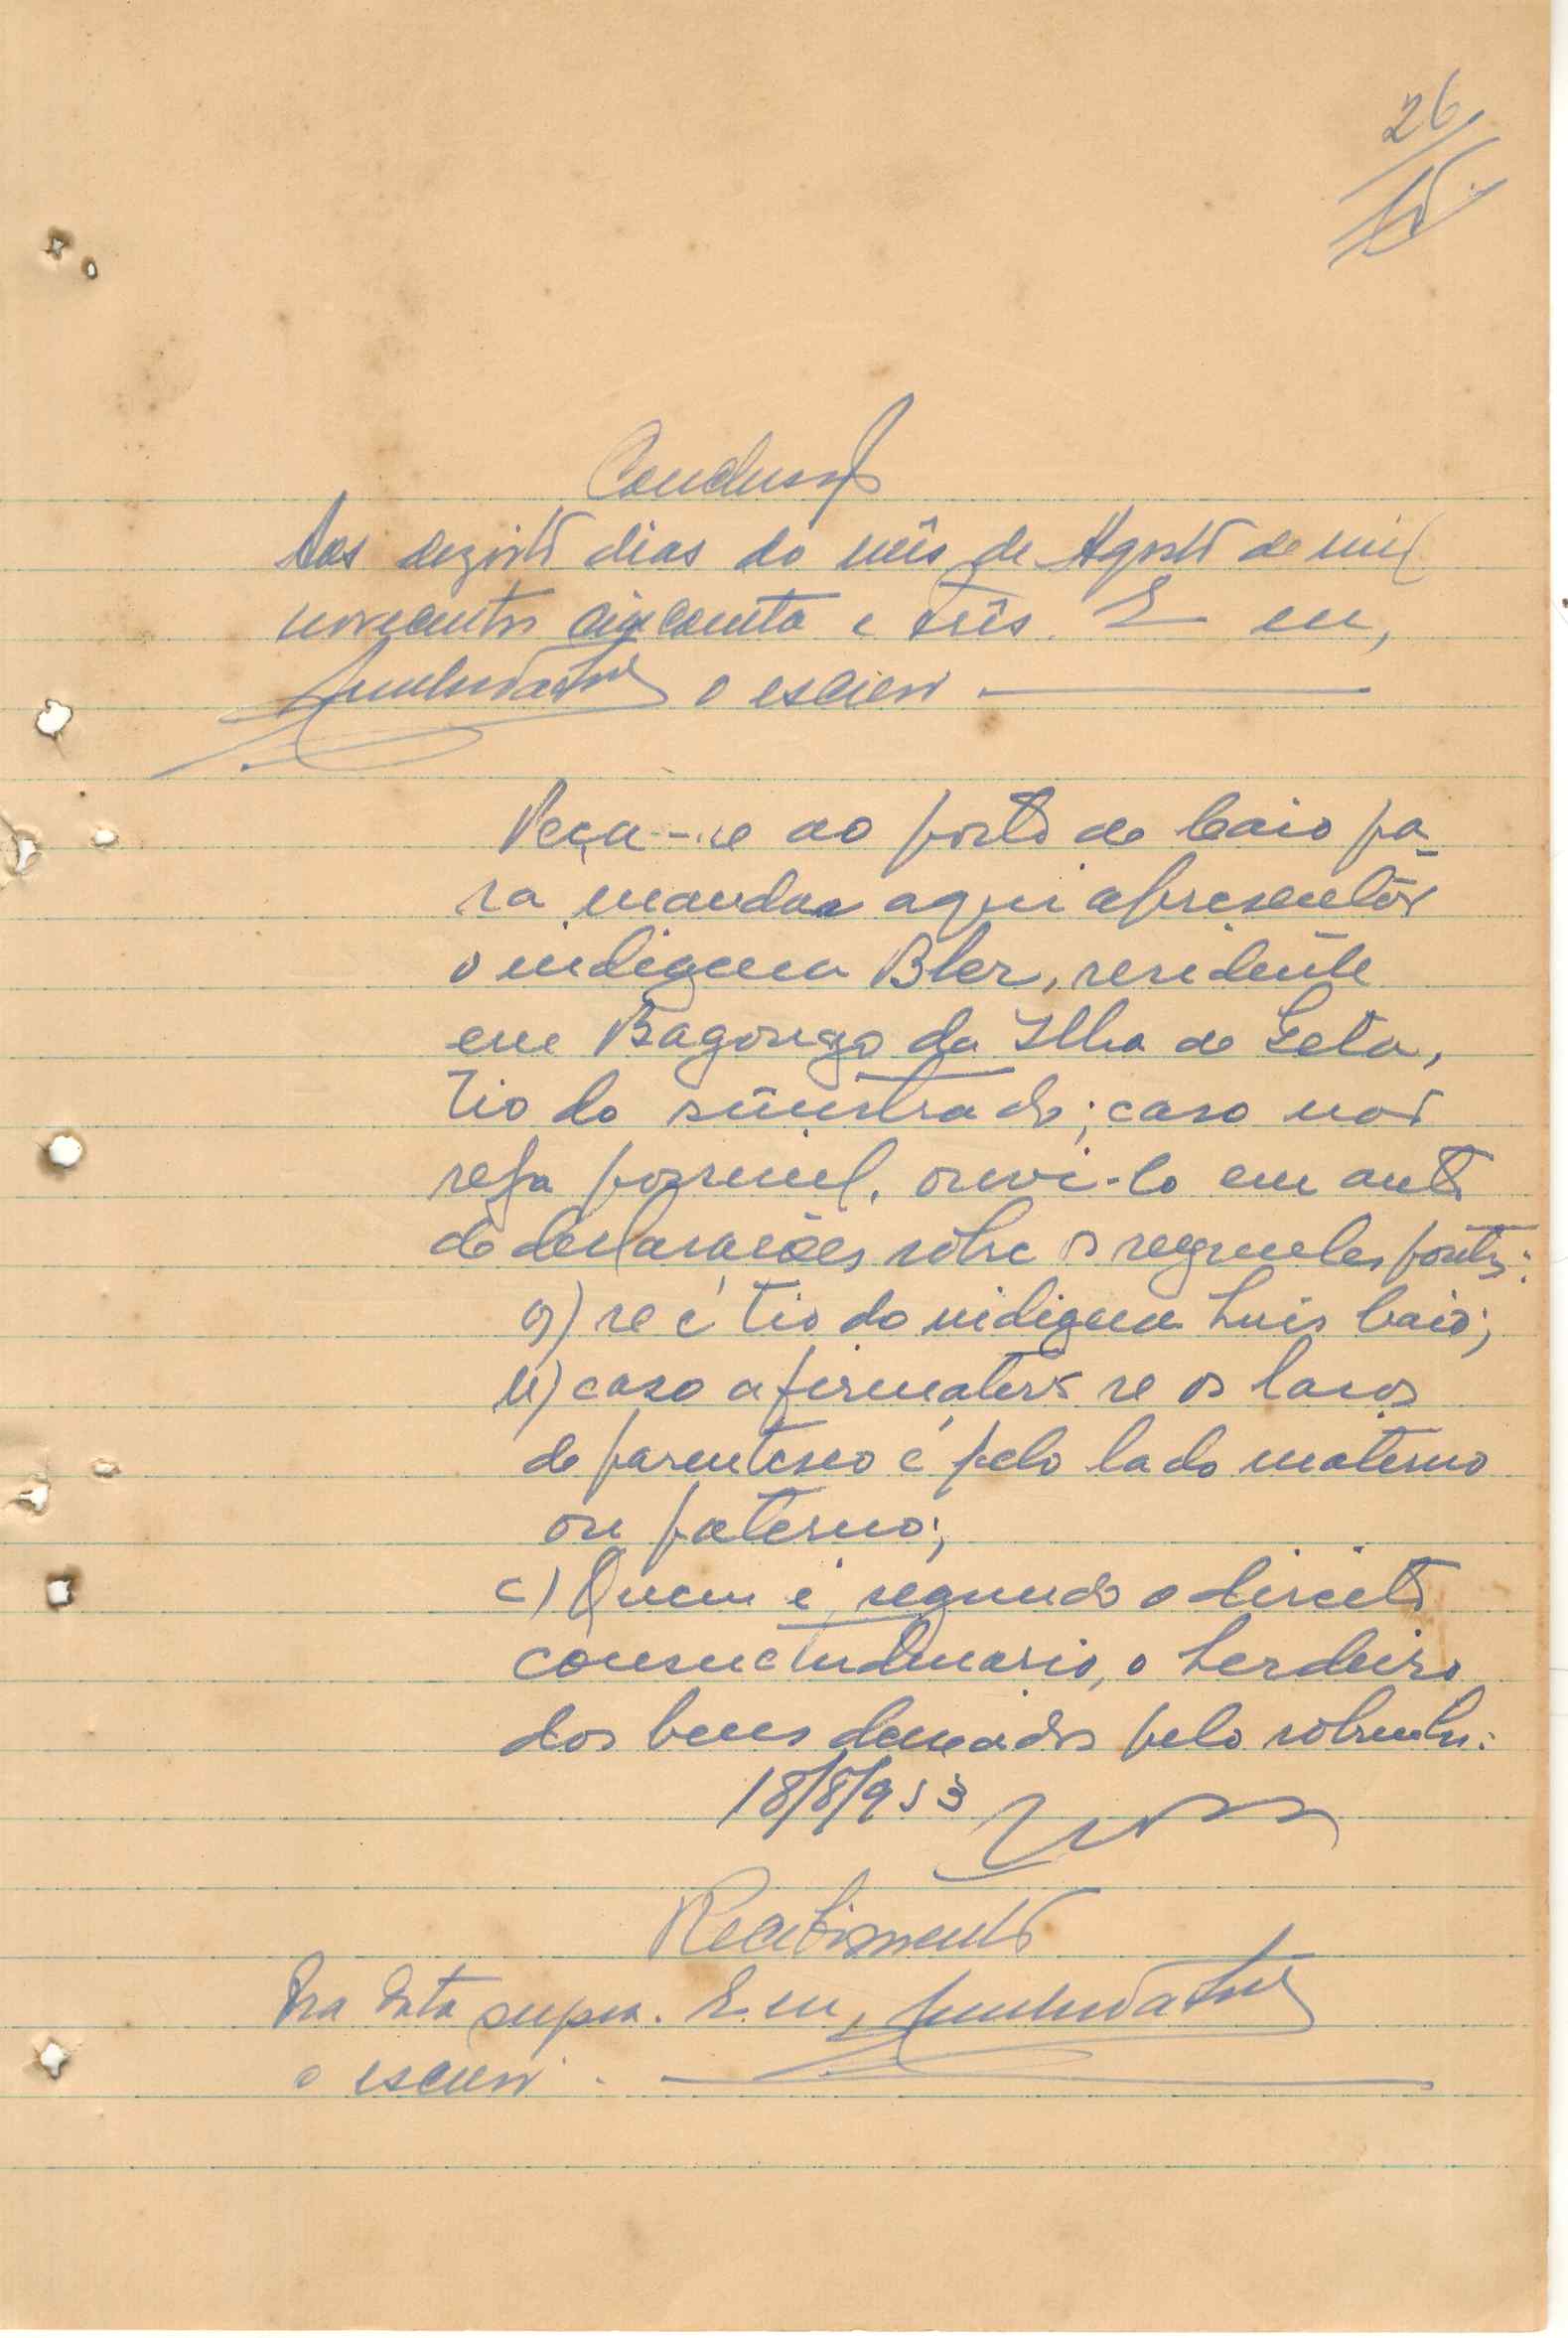 26
Conclusão
Aos dezoito dias do mês de Agosto de mil
novecentos cinconta e três. E eu,
o escrevi
Peça-se ao posto de Caio pa-
ra mandar aqui apresentar
o indigena Bler, residente
em Bagongo da Ilha de Geta,
tio do sinistrado; caso não
seja possivel, ouvi-lo em auto
de declarações sôbre os seguintes pontos:
a) se é tio do indigena Luis Caio;
b) caso afirmativo se os laços
de parentesco é pelo lado materno
ou paterno;
c) Quem é, segundo o direito
consuetudinario, o herdeiro
dos bens deixados pelo sobrinho.
18/8/953
Recebimento
Na data supra. E eu,
o escrevi.